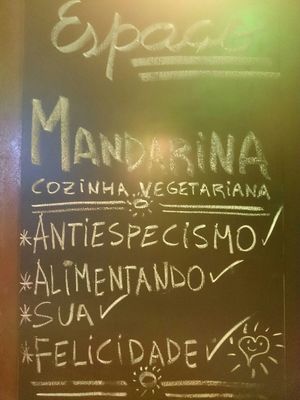 Espaço
MANDARINA
COZINHA VEGETARIANA
*ANTIESPECISMO✓
*ALIMENTANDO✓
*SUA✓
*FELICIDADE✓